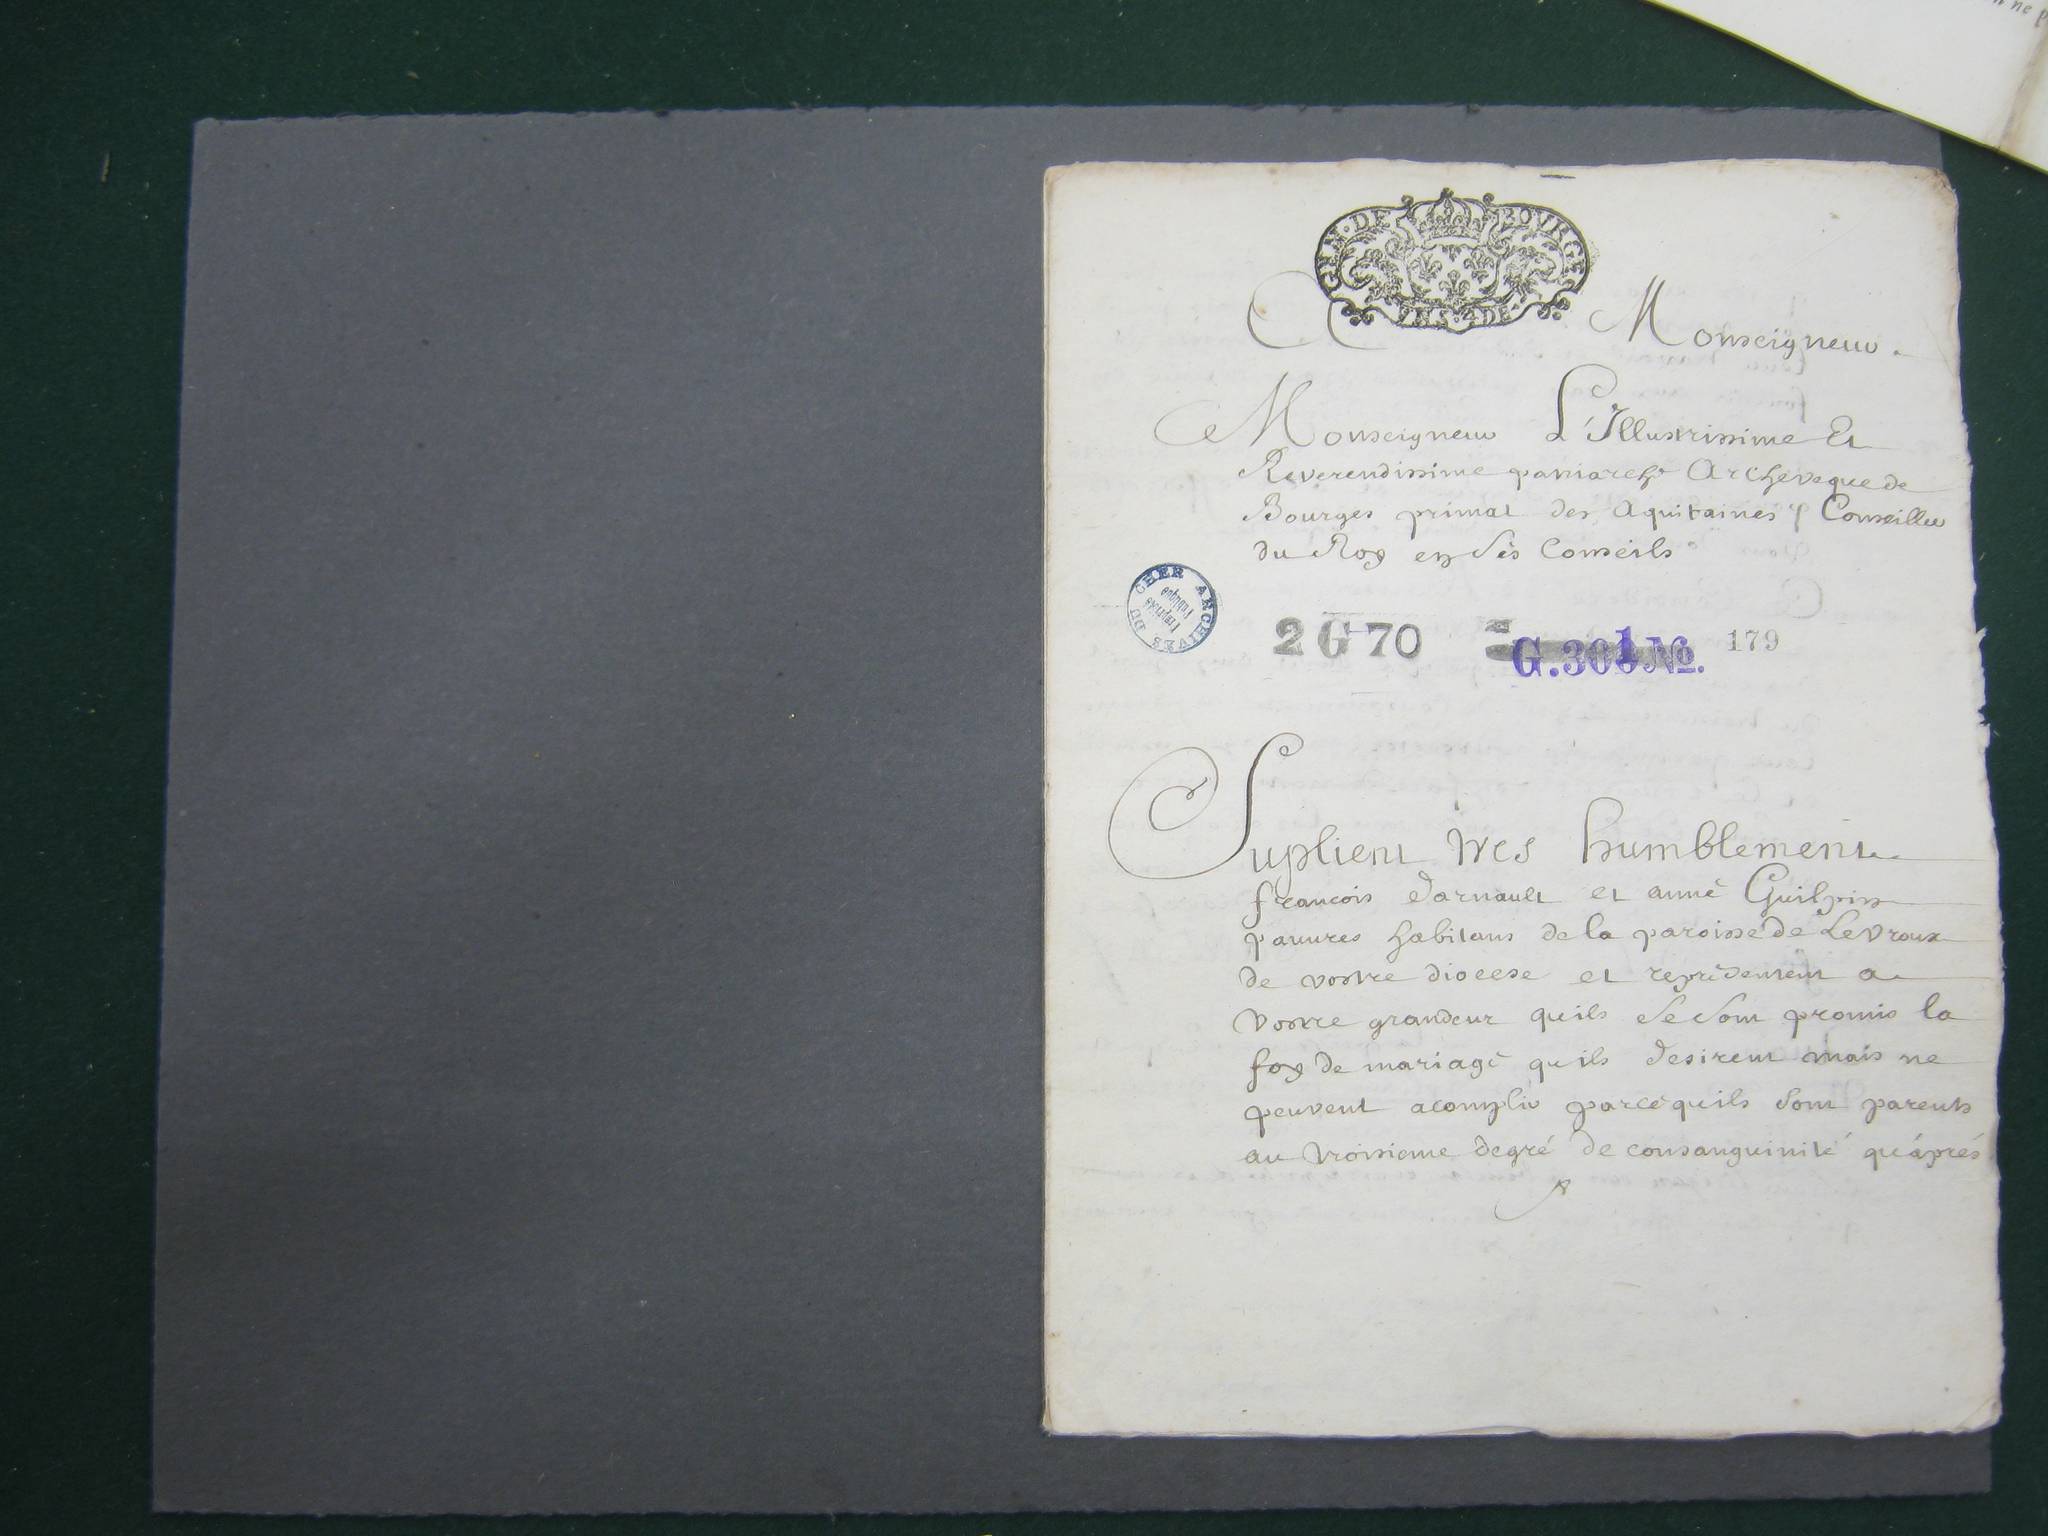 GEN·DE BOURGES
A Monseigneur
Monseigneur L'Illustrissime Et
Reverendissime patriarche Archeveque de
Bourges primat des Aquitaines Conseiller
du Roy en ses Conseils
ARCHIVES DU CHER
2 G 70 G.301 No. 179
Suplient tres humblement
francois darnault et anne Guilpin
pauures habitans de la paroisse de Levroux
de vostre diocese et representent a
vostre grandeur quils se sont promis la
foy de mariage quils desirent mais ne
peuvent acomplir parcequils sont parents
au troisieme degré de consanguinité qu'áprés